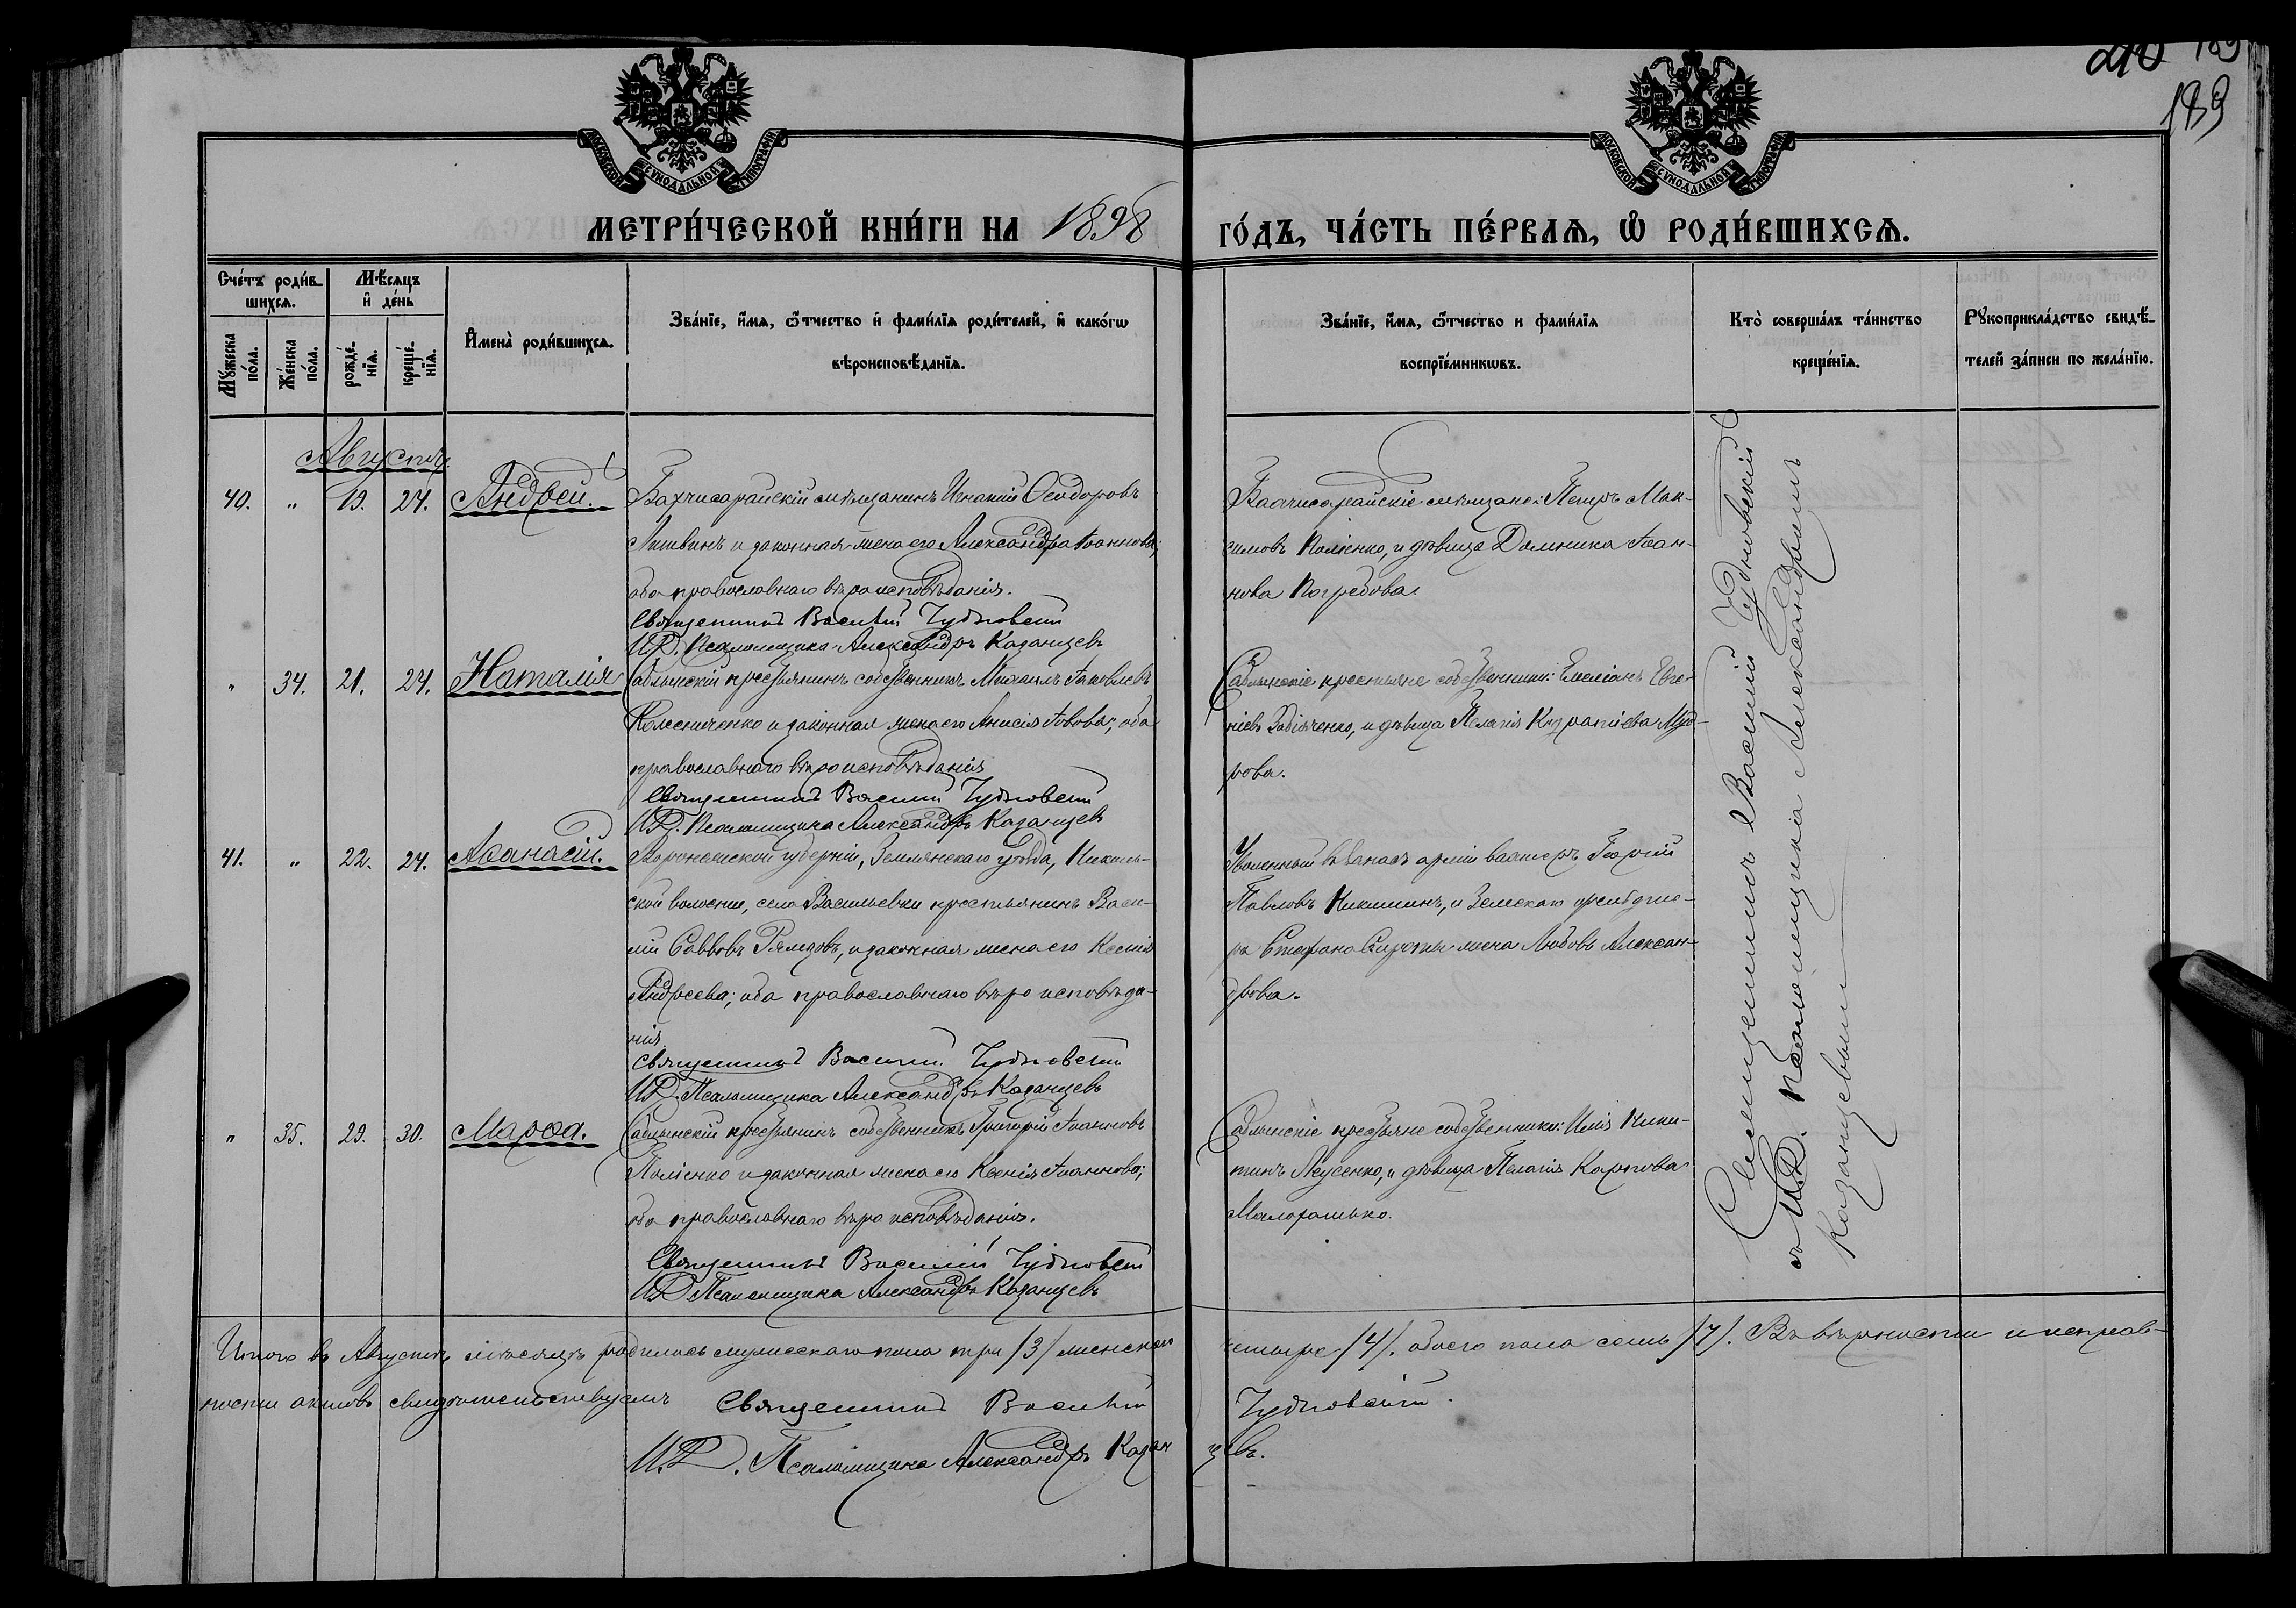 210 189
189
МОСКОВСКОЙ СѴНОДАЛЬНОЙ ТИПОГРАФІИ
МОСКОВСКОЙ СѴНОДАЛЬНОЙ ТИПОГРАФІИ
МЕТРИ́ЧЕСКОЙ КНИ́ГИ НА 1898 ГО́ДЪ, ЧА́СТЬ ПЕ́РВАѦ, Ѡ҆ РОДИ́ВШИХСѦ.
Сче́тъ роди́в-
шихсѧ.
Мѹ́жеска по́ла.
Же́нска по́ла.
Мѣ́сѧцъ
и҆ де́нь
рожде́-
нїѧ.
креще́-
нїѧ.
И҆мена̀ роди́вшихсѧ.
Зва́нїе, и҆́мѧ, ѻ҆́тчество и҆ фами́лїѧ роди́телей, и҆ како́гѡ
вѣроисповѣ́данїѧ.
Зва́нїе, и҆́мѧ, ѻ҆́тчество и фами́лїѧ
воспрїе́мникѡвъ.
Кто̀ соверша́лъ та́инство
креще́нїѧ.
Рꙋкоприкла́дство свидѣ́-
телей за́писи по жела́нїю.
Августъ
40. „ 19. 24. Андрей. Бахчисарайскій мѣщанинъ Игнатій Ѳеодоровъ
Литвинъ и законная жена его Александра Іоаннова;
оба православнаго вѣроисповѣданія.
Священникъ Василій Чудновскій
И.Д. Псаломщика Александръ Казанцевъ
Бахчисарайскіе мѣщане: Петръ Мак-
симовъ Поліенко, и дѣвица Домника Іоан-
нова Погребова.
„ 34. 21. 24. Наталія Саблынскій крестьянинъ собственникъ Михаилъ Іаковлевъ
Колесниченко и законная жена его Анисія Іовова; оба
православнаго вѣроисповѣданія
Священникъ Василій Чудновскій
И.Д. Псаломщика Александръ Казанцевъ
Саблынскіе крестьяне собственники: Емеліанъ Евге-
ніевъ Забіяченко, и дѣвица Пелагія Кодратіева
рова.
41. „ 22. 24. Аѳанасій. Воронежской губерніи, Землянскаго уѣзда, Николь-
ской волости, села Васильевки крестьянинъ Васи-
лій Савовъ и законная жена его Ксенія
Андреева; оба православнаго вѣро исповѣда-
нія.
Священникъ Василій Чудновскій
И.Д. Псаломщика Александръ Казанцевъ
Уволенный въ запасъ арміи Георгій
Павловъ Никишинъ, и Земскаго фельдше-
ра Стефана Сироты жена Любовь Алексан-
дрова.
„ 35. 29. 30. Марѳа. Саблынскій крестьянинъ собственникъ Григорій Іоанновъ
Поліенко и законная жена его Ксенія Іоаннова;
оба православнаго вѣроисповѣданія.
Священникъ Василій Чудновскій
И.Д. Псаломщика Александръ Казанцевъ
Саблынскіе крестьяне собственники: Илія Ники-
тинъ Леусенко, и дѣвица Пелагія Карпова
Священникъ Василій Чудновскій
съ И.Д. псаломщика Александромъ
Казанцевымъ
Итого въ Августѣ мѣсяцѣ родилось мужескаго пола три /3/ женскаго четыре /4/. обоего пола семь /7/. Въ вѣрности и исправ-
ности актовъ свидѣтельствуемъ Священникъ Василій Чудновскій.
И.Д. Псаломщика Александръ Казанцевъ.